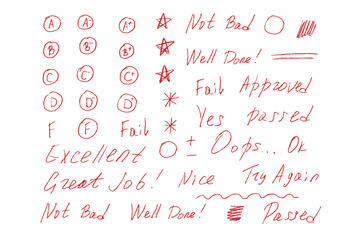 A A A+ Not Bad
B B+ B+ Well Done!
C C+ C+ Fail Approved
D D+ D+ Yes passed
F F Fail
Excellent ± Oops... Ok
Great Job! Nice Try Again
Not Bad Well Done! Passed